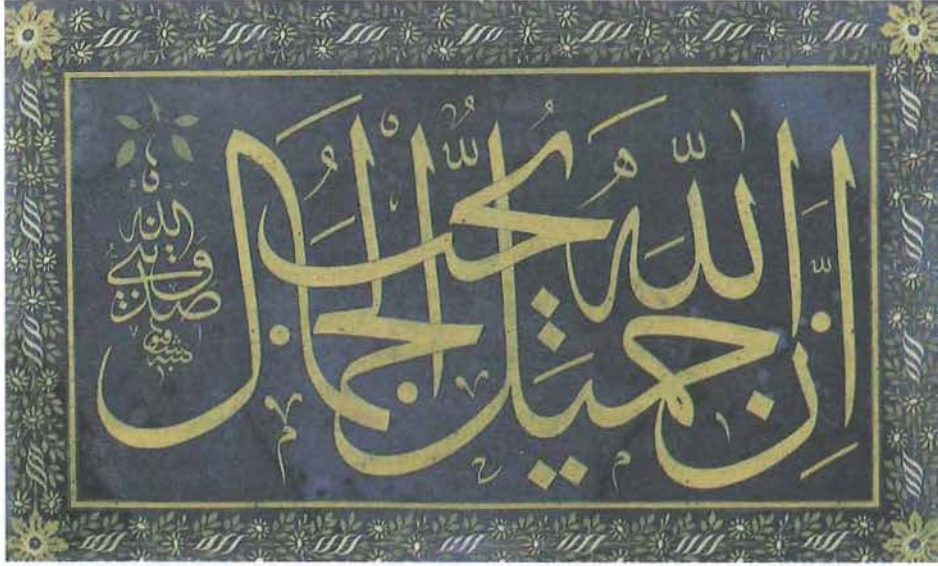 ان الله جميل يحب الجمال
صدق نبي الله